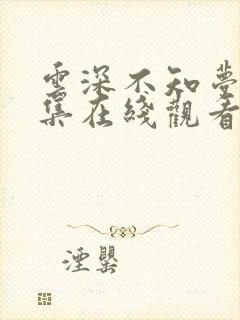 雲深不知夢
集在綫觀看
湮罍